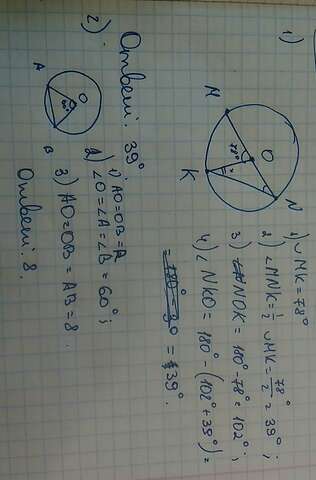 1)
M
78°
O
K
N
1) ∪MK = 78°
2) ∠MNK = 1/2 ∪MK = 78°/2 = 39°;
3) ∠NOK = 180° - 78° = 102°;
4) ∠NKO = 180° - (102° + 39°) =
= 39°.
Ответ: 39°
2)
A
O
60°
B
1) AO = OB = R
2) ∠O = ∠A = ∠B = 60°;
3) AO = OB = AB = 8.
Ответ: 8.